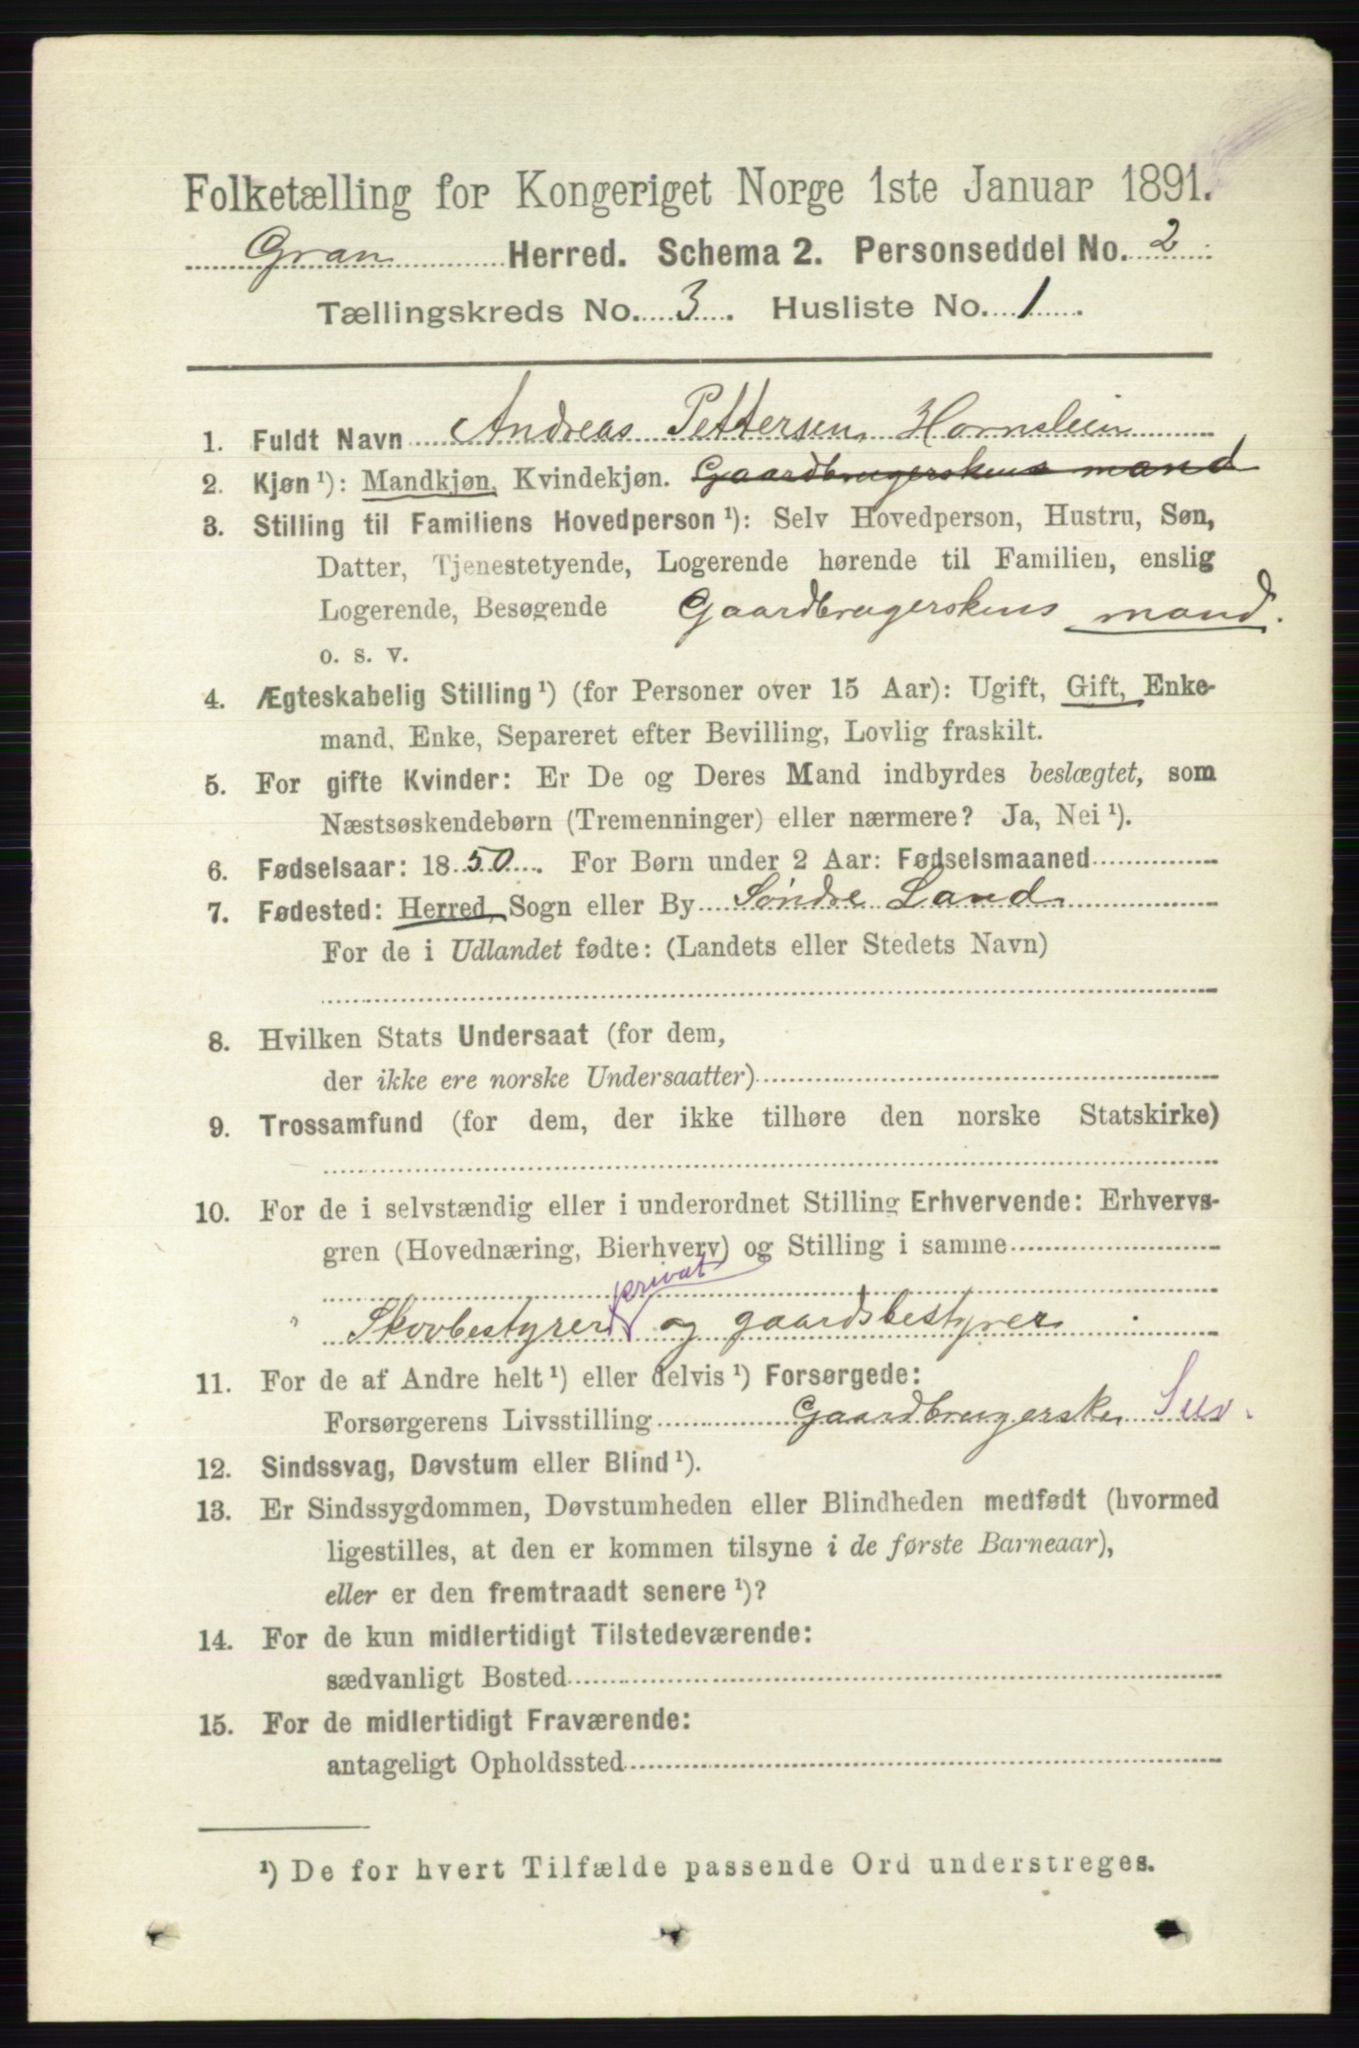 Folketælling for Kongeriget Norge 1ste Januar 1891.
Gran Herred. Schema 2. Personseddel No. 2
Tællingskreds No. 3. Husliste No. 1.
1. Fuldt Navn Andreas Pettersen Hornslein
2. Kjøn ¹): Mandkjøn, Kvindekjøn. Gaardbrugerskens mand
3. Stilling til Familiens Hovedperson ¹): Selv Hovedperson, Hustru, Søn,
Datter, Tjenestetyende, Logerende hørende til Familien, enslig
Logerende, Besøgende Gaardbrugerskens mand.
o. s. v.
4. Ægteskabelig Stilling ¹) (for Personer over 15 Aar): Ugift, Gift, Enke-
mand, Enke, Separeret efter Bevilling, Lovlig fraskilt.
5. For gifte Kvinder: Er De og Deres Mand indbyrdes beslægtet, som
Næstsøskendebørn (Tremenninger) eller nærmere? Ja, Nei ¹).
6. Fødselsaar: 1850. For Børn under 2 Aar: Fødselsmaaned
7. Fødested: Herred, Sogn eller By Søndre Land
For de i Udlandet fødte: (Landets eller Stedets Navn)
8. Hvilken Stats Undersaat (for dem,
der ikke ere norske Undersaatter)
9. Trossamfund (for dem, der ikke tilhøre den norske Statskirke)
10. For de i selvstændig eller i underordnet Stilling Erhvervende: Erhvervs-
gren (Hovednæring, Bierhverv) og Stilling i samme
privat
Skovbestyrer og gaardsbestyrer
11. For de af Andre helt ¹) eller delvis ¹) Forsørgede:
Forsørgerens Livsstilling Gaardbrugerske
12. Sindssvag, Døvstum eller Blind ¹).
13. Er Sindssygdommen, Døvstumheden eller Blindheden medfødt (hvormed
ligestilles, at den er kommen tilsyne i de første Barneaar),
eller er den fremtraadt senere ¹)?
14. For de kun midlertidigt Tilstedeværende:
sædvanligt Bosted
15. For de midlertidigt Fraværende:
antageligt Opholdssted
¹) De for hvert Tilfælde passende Ord understreges.